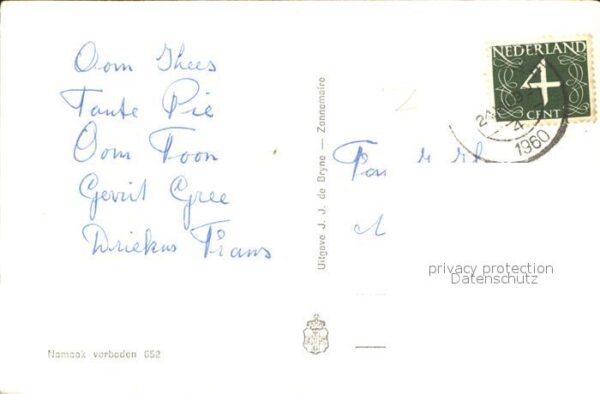 Oom Thees
Tante Pie
Oom Toon
Gerrit Gree
Driekus Frans
Namaak verboden 652
Uitgave J. J. de Bryne — Zonnemaire
NEDERLAND
4
CENT
1960
Fam
privacy protection
Datenschutz